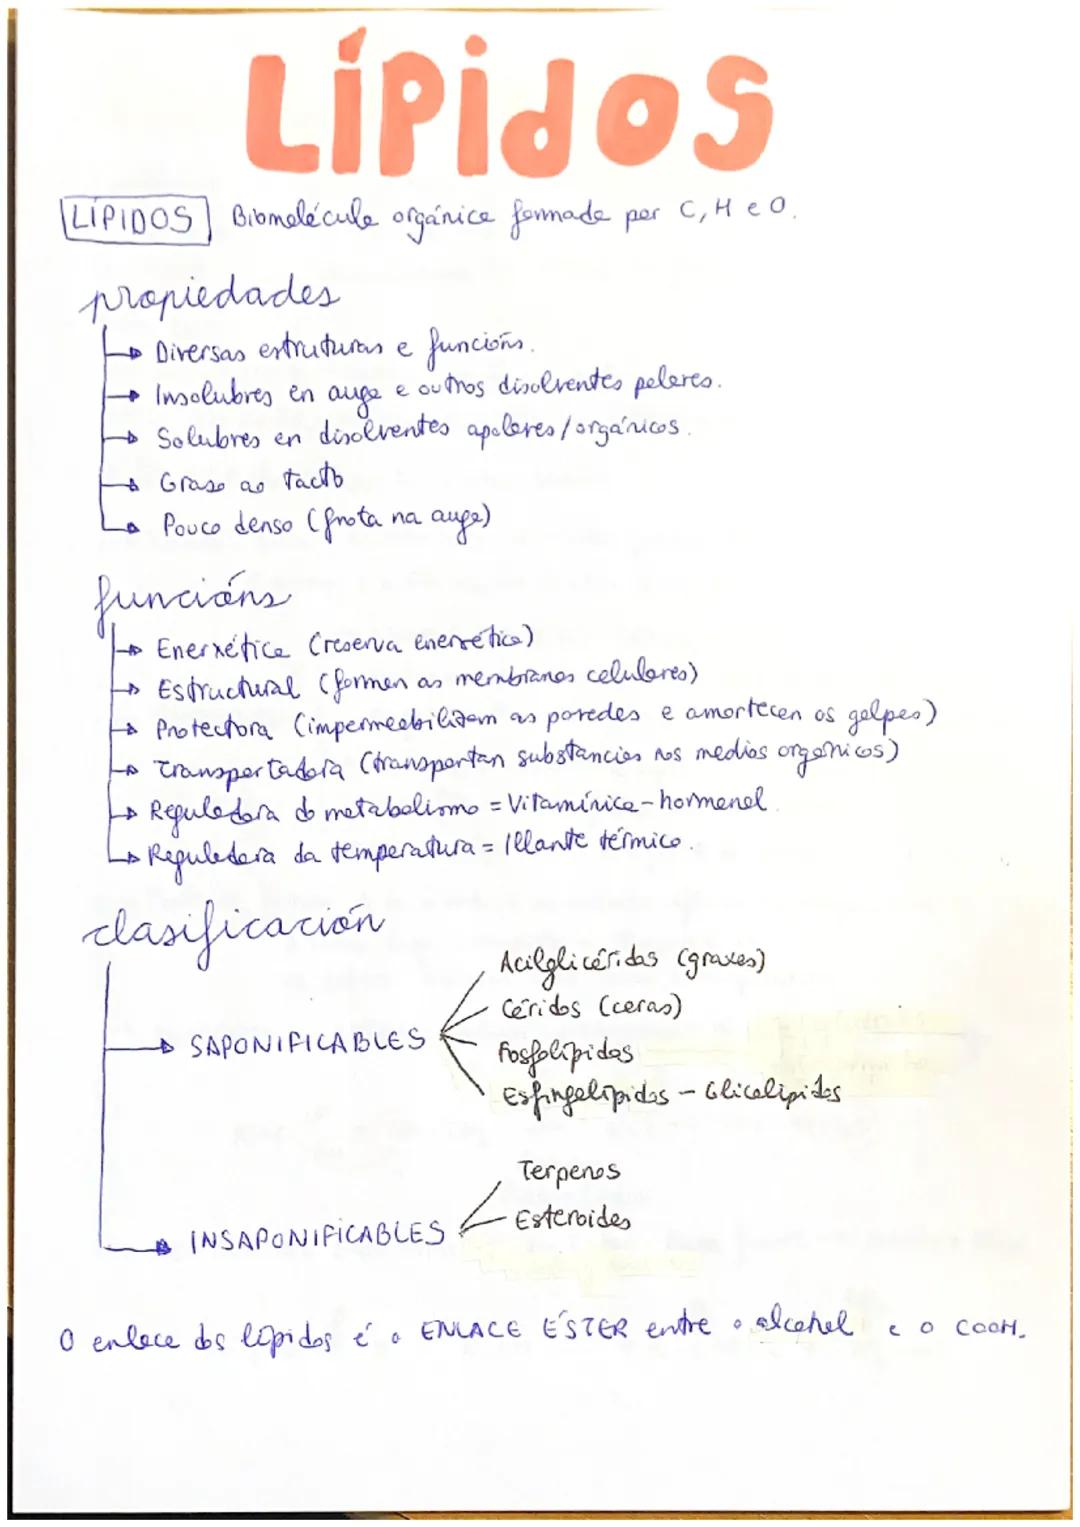 LÍPidOS
LÍPIDOS Biomolécula orgánica formada por C, H e O.
propiedades
Diversas estruturas e funcións.
Insolubres en auga e outros disolventes polares.
Solubres en disolventes apolares/orgánicos.
Graso ao tacto
Pouco denso (frota na auga)
funcións
Enerxética (reserva enerxética)
Estructural (forman as membranas celulares)
Protectora (impermeabilizam as paredes e amortecen os golpes)
Transportadora (transportan substancias nos medios orgánicos)
Reguladora do metabolismo = Vitamínica-hormonal.
Reguladora da temperatura = Illante térmico.
clasificación
Acilglicéridos (graxas)
Céridos (ceras)
SAPONIFICABLES
Fosfolípidos
Esfingolípidos - Glicolípidos
Terpenos
Esteroides
INSAPONIFICABLES
O enlace dos lípidos é o ENLACE ÉSTER entre o alcohol e o COOH.